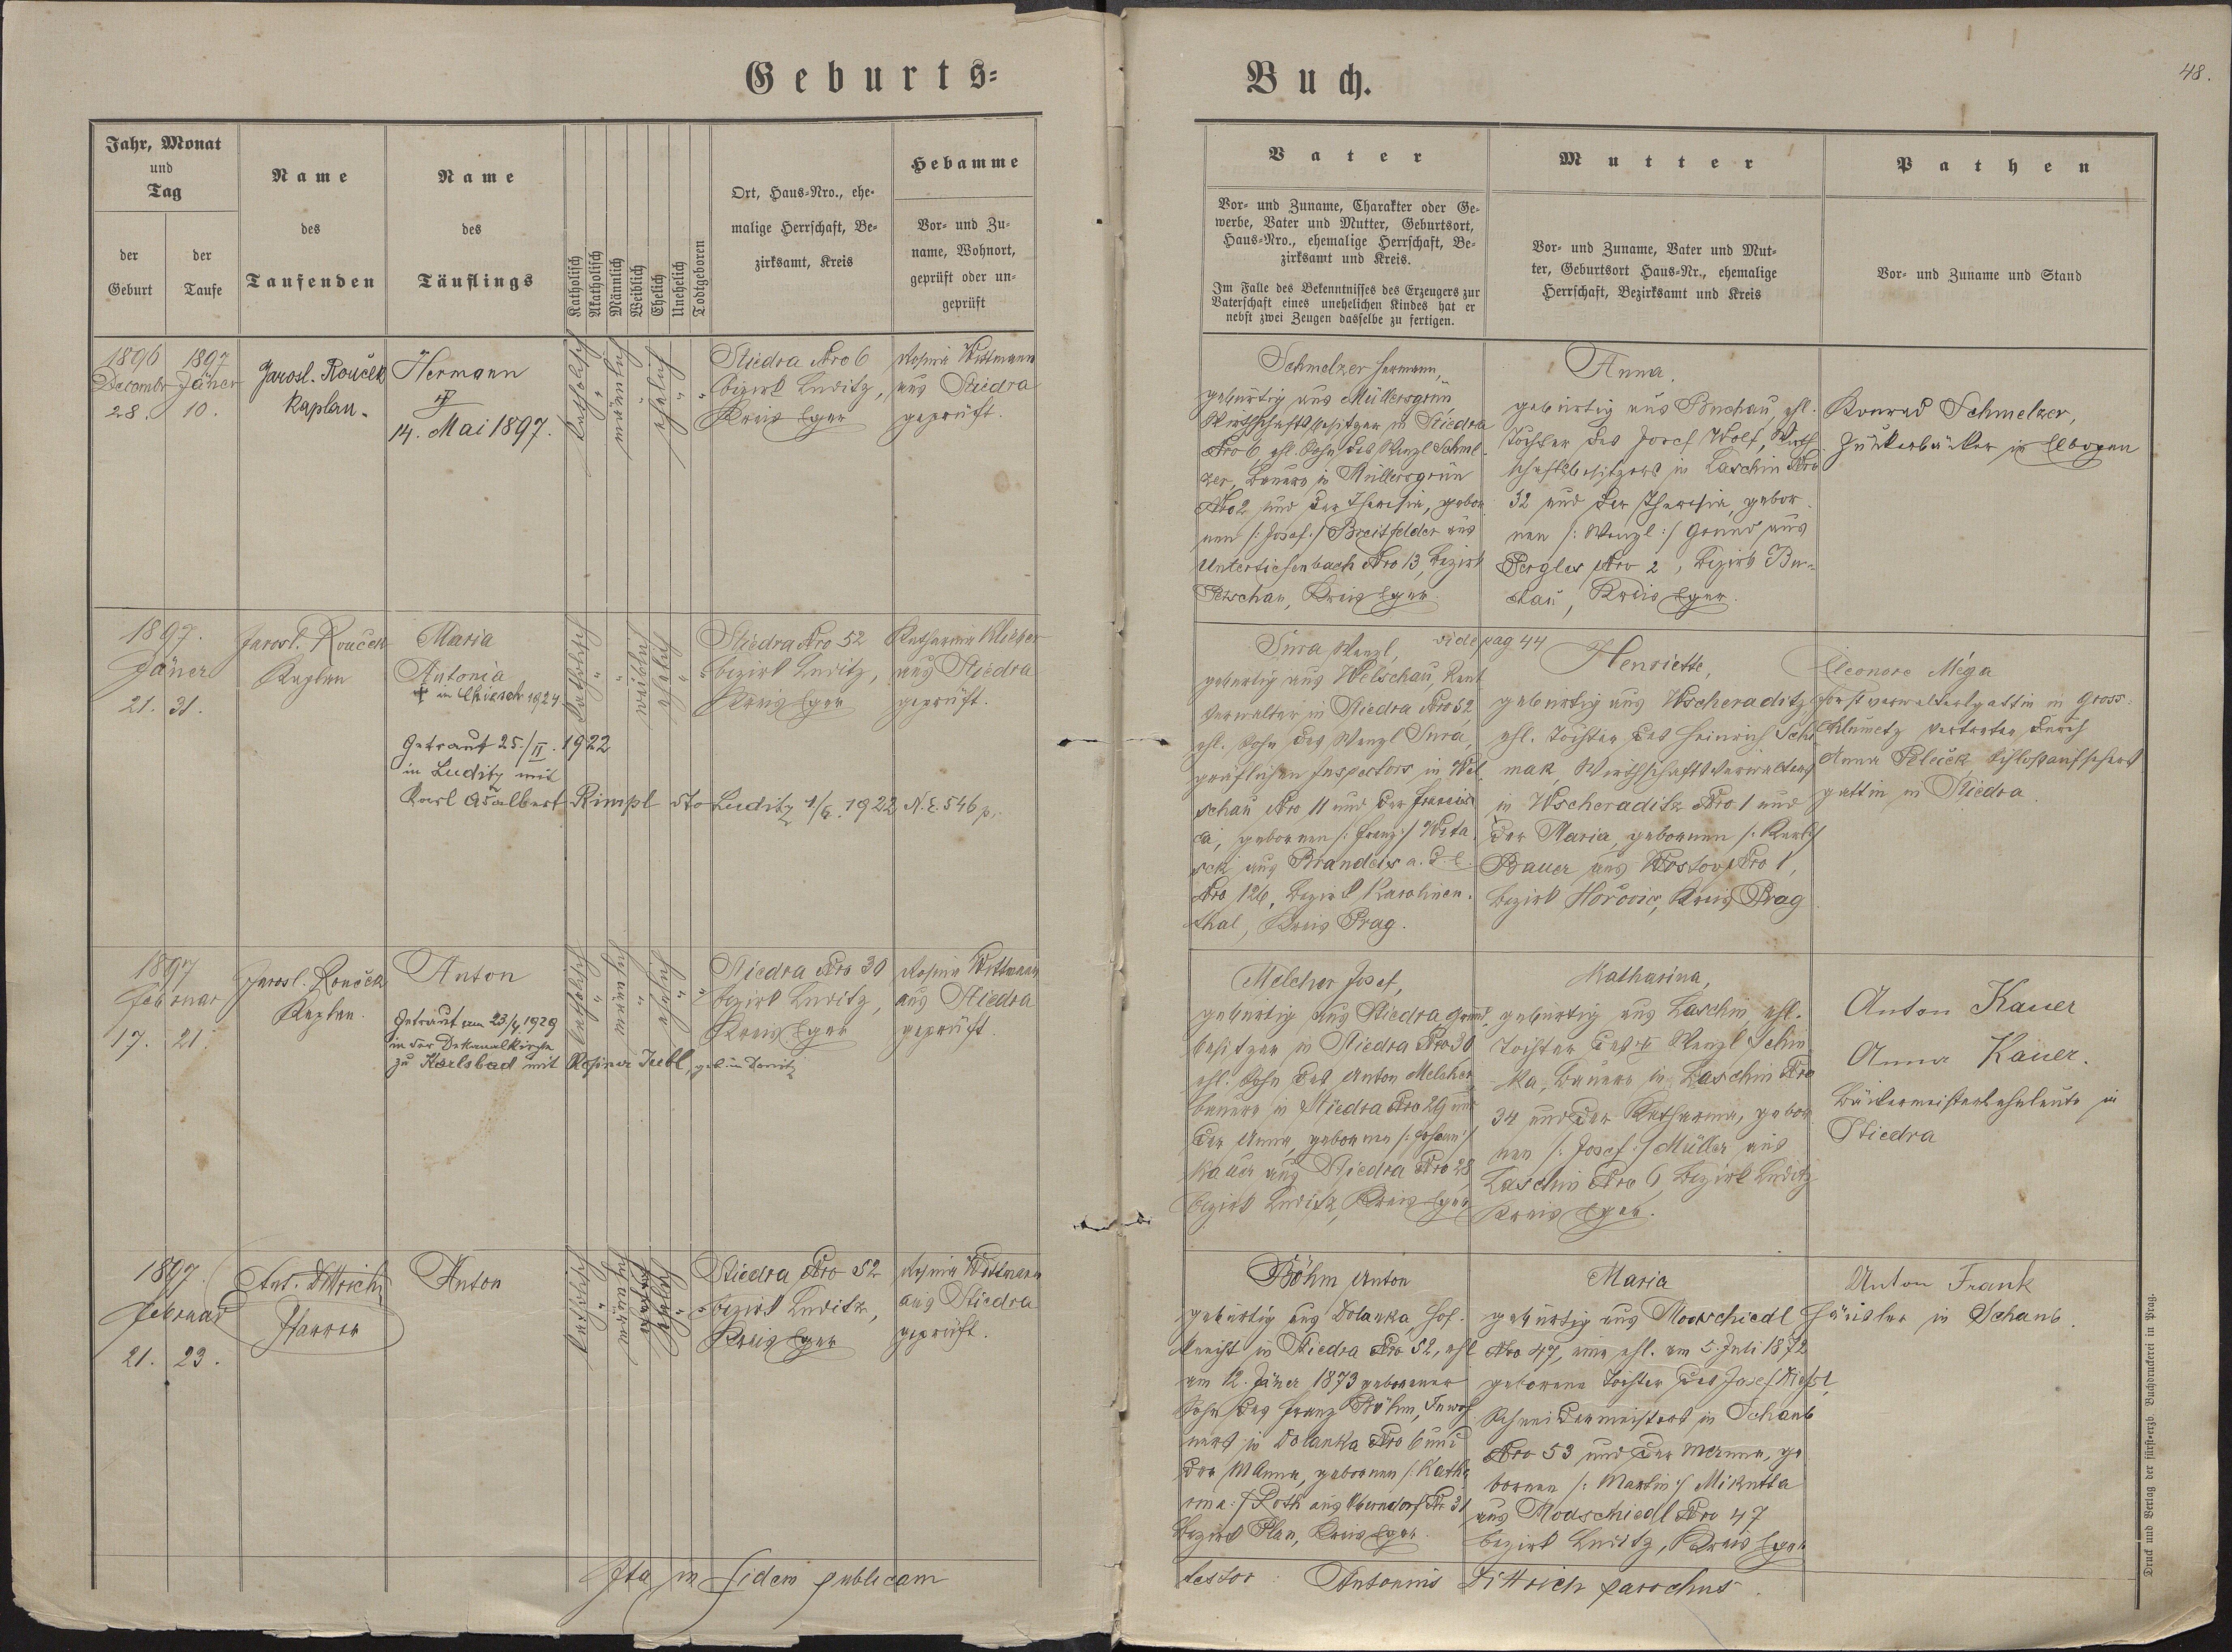 Geburts=
Buch.
48.
Jahr, Monat
und
Tag
der
Geburt
der
Taufe
Name
des
Taufenden
Name
des
Täuflings
Katholisch
Akatholisch
Männlich
Weiblich
Ehelich
Unehelich
Todtgeboren
Ort, Haus=Nro., ehe=
malige Herrschaft, Be=
zirksamt, Kreis
Hebamme
Vor= und Zu=
name, Wohnort,
geprüft oder un=
geprüft
Vater
Vor= und Zuname, Charakter oder Ge=
werbe, Vater und Mutter, Geburtsort,
Haus=Nro., ehemalige Herrschaft, Be=
zirksamt und Kreis.
Im Falle des Bekenntnisses des Erzeugers zur
Vaterschaft eines unehelichen Kindes hat er
nebst zwei Zeugen dasselbe zu fertigen.
Mutter
Vor= und Zuname, Vater und Mut=
ter, Geburtsort Haus=Nr., ehemalige
Herrschaft, Bezirksamt und Kreis
Pathen
Vor= und Zuname und Stand
1896
Decembr
28.
1897
Jäner
10.
Jarosl. Rouček
Kaplan.
Hermann
14. Mai 1897.
katholisch
"
männlich
"
ehelich
"
"
Stiedra Nro 6
bezirk Luditz,
Kreis Eger
Rosina Wittmann
aus Stiedra
geprüft.
Schmelzer Hermann,
gebürtig aus Müllersgrün
Wirthschaftsbesitzer in Stiedra
Nro 6, ehl. Sohn des Wenzl Schmel
zer, Bauers in Müllersgrün
Nro 2 und der Theresia, gebor
nen /: Josef :/ Breitfelder aus
Untertiefenbach Nro 13, Bezirk
Petschau, Kreis Eger.
Anna,
gebürtig aus Buchau, ehl.
Tochter des Josef Wolf, Wirth
schaftsbesitzers in Laschin Nro
32 und der Theresia, gebor
nen /: Wenzl :/ Grund aus
Pergles Nro 2, Bezirk Bu=
chau, Kreis Eger.
Konrad Schmelzer,
Zuckerbäcker in Elbogen
1897.
Jäner
21. 31.
Jarosl. Rouček
Kaplan
Maria
Antonia
+ in Chiesch 1924
Getraut 25./II. 1922
in Luditz mit
Karl Adalbert Rimpl dto Luditz 1/6. 1922 N.E. 546 p.
katholisch
"
"
weiblich
ehelich
"
"
Stiedra Nro 52
bezirk Luditz,
Kreis Eger
Katharina Klieber
aus Stiedra
geprüft.
Sura Wenzl,
gebürtig aus Welschau, Rent
verwalter in Stiedra Nro 52
ehl. Sohn des Wenzl Sura,
gräflichen Inspectors in Wel
schau Nro 11 und der Francis
ca, gebornen /: Franz :/ Wita
sek aus Brandeis a. d. E.
Nro 126, Bezirk Karolinen.
thal, Kreis Prag.
vide pag 44
Henriette,
gebürtig aus Wscheraditz,
ehl. Tochter des Heinrich
mak, Wirthschaftsverwalters
in Wscheraditz Nro 1 und
der Maria, gebornen /: Karl :/
Bauer aus Wostov Nro 1,
bezirk Hořovic, Kreis Prag
Eleonore Méga
Forstverwaltersgattin in Gross=
Chlumetz vertreten durch
Anna Peluck Schloßaufsehers
gattin in Stiedra.
1897
Februar
17. 21
Jarosl. Rouček
Kaplan.
Anton
Getraut am 23/4. 1929
in der Dekanalkirche
zu Karlsbad mit Rosina Teibl, geb. in Donitz
katholisch
"
männlich
"
ehelich
"
"
Stiedra Nro 30
bezirk Luditz,
Kreis Eger
Rosina Wittmann
aus Stiedra
geprüft.
Melcher Josef,
gebürtig aus Stiedra, Grund.
besitzer in Stiedra Nro 30
ehl. Sohn des Anton Melcher
bauers in Stiedra Nro 29 und
der Anna, gebornen /: Johann :/
Kauer aus Stiedra Nro 28,
bezirk Luditz, Kreis Eger
Katharina,
gebürtig aus Laschin, ehl.
Tochter des Wenzl Schim
ka, Bauers in Laschin Nro
34 und der Katharina, gebor
nen /: Josef :/ Müller aus
Laschin Nro 6, Bezirk Luditz
Kreis Eger.
Anton Kauer
Anna Kauer.
Bäckermeisterseheleute in
Stiedra
1897.
Februar
21. 23.
Ant. Dittrich
Pfarrer
Anton
katholisch
"
männlich
ehelich
"
"
Stiedra Nro 52
bezirk Luditz,
Kreis Eger
Rosina Wittmann
aus Stiedra
geprüft.
Böhm Anton
gebürtig aus Dolanka, Hof.
knecht in Stiedra Nro 52, ehl
am 12. Jäner 1873 geborener
Sohn des Franz Böhm, Inwoh
ners in Dolanka Nro 6 und
der MAnna, gebornen /: Katha
rina :/ Roth aus Oberndorf Nr 31
Bezirk Plan, Kreis Eger.
Maria
gebürtig aus Modschiedl
Nro 47, eine ehl. am 5. Juli 1872
geborene Tochter des Josef
Schneidermeisters in Schaub
Nro 53 und der MAnna, ge
bornen /: Martin :/ Mikutta
aus Modschiedl Nro 47
bezirk Luditz, Kreis Eger
Anton Frank
Häusler in Schaub.
Ita in fidem publicam
testor: Antonius Dittrich parochus.
Druck und Verlag der fürst=erzb. Buchdruckerei in Prag.